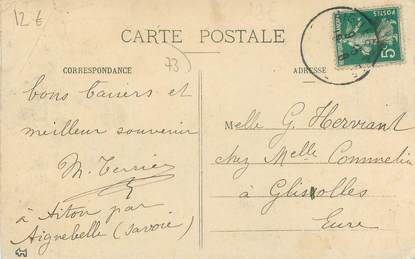 12 €
CARTE POSTALE
73
CORRESPONDANCE
ADRESSE
POSTES
5c
bons baisers et
meilleur souvenir
M. Terrier
à Aiton par
Aiguebelle (Savoie)
Melle G. Herviant
chez Melle Commelin
à Glisolles
Eure